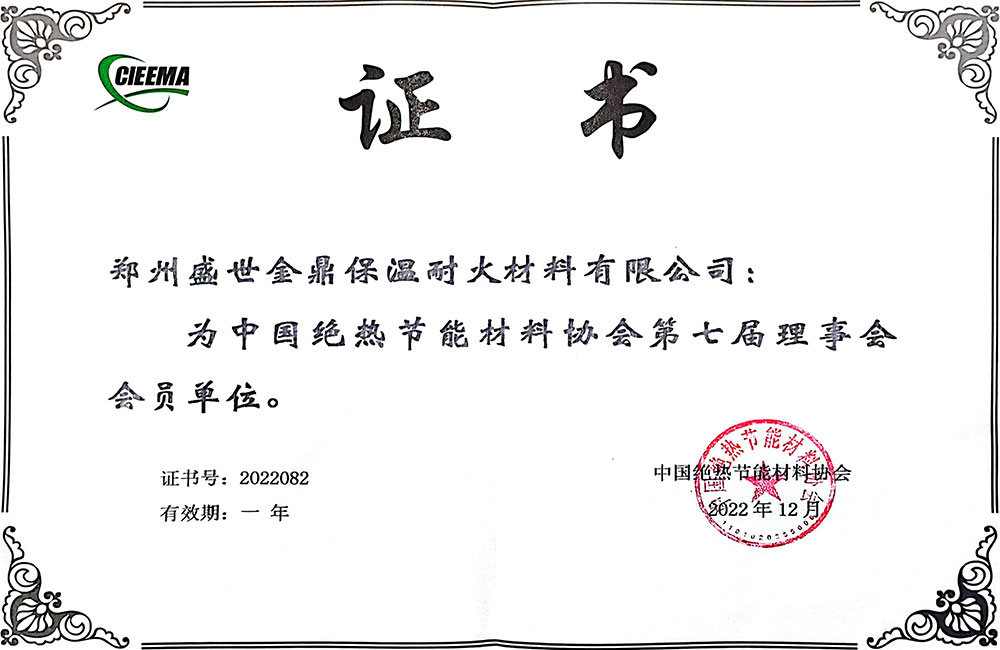 CIEEMA
证书
郑州盛世金鼎保温耐火材料有限公司：
为中国绝热节能材料协会第七届理事会
会员单位。
证书号：2022082
有效期：一 年
中国绝热节能材料协会
2022 年 12 月
中国绝热节能材料协会